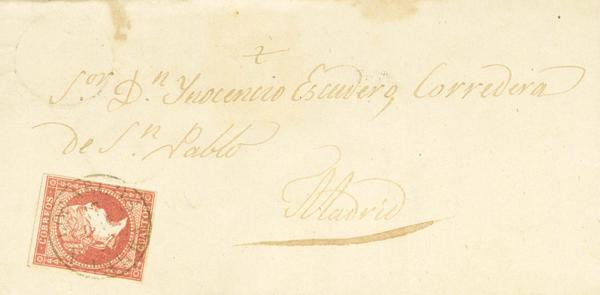 S.or D.n Ynocencio Escudero, Corredera
de S.n Pablo
Madrid
CORREOS